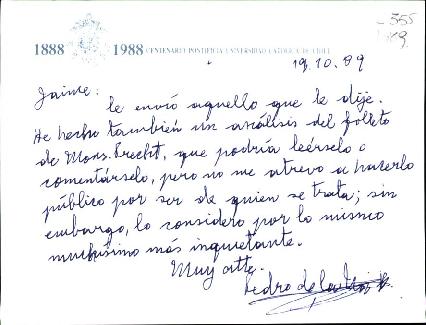 355
1888 1988 CENTENARIO PONTIFICIA UNIVERSIDAD CATOLICA DE CHILE
19.10.89
Jaime:
le envío aquello que le dije.
He hecho también un análisis del folleto
de Mons. Precht, que podría leérselo o
comentárselo, pero no me atrevo a hacerlo
público por ser de quien se trata; sin
embargo, lo considero por lo mismo
muchísimo más inquietante.
Muy atte.
Pedro de la